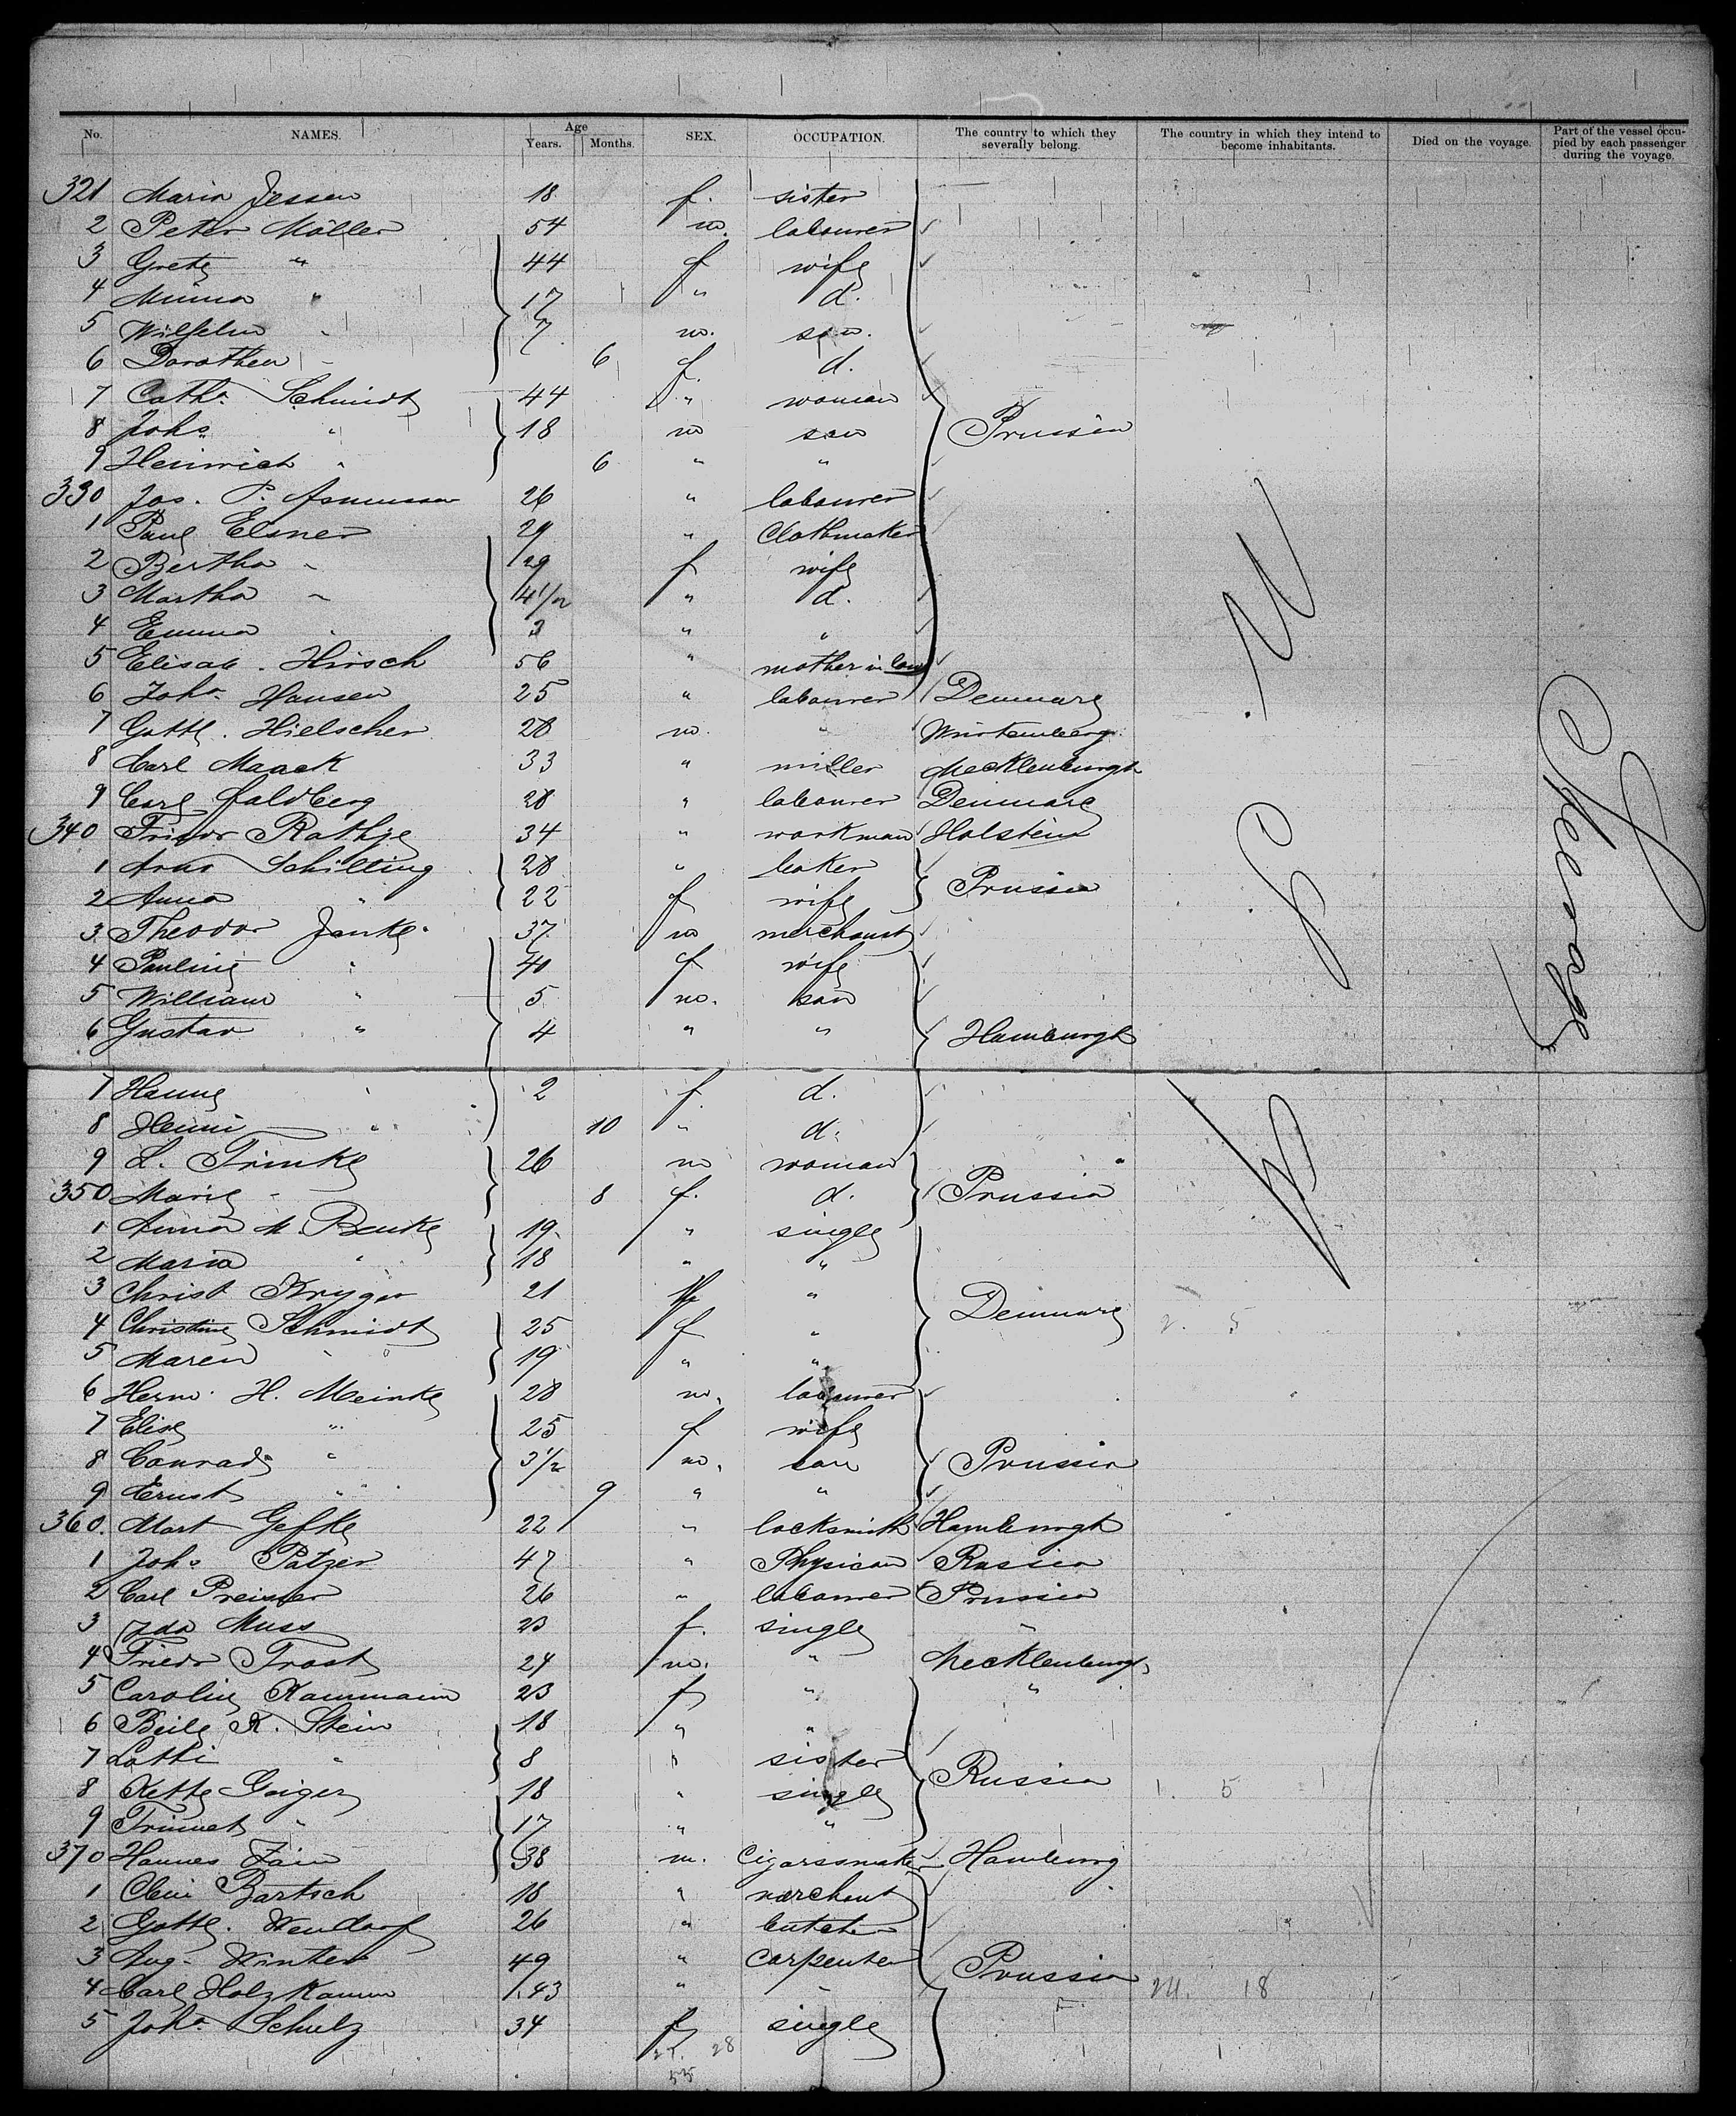 No. NAMES. Age Years. Months. SEX. OCCUPATION. The country to which they severally belong. The country in which they intend to become inhabitants. Died on the voyage. Part of the vessel occupied by each passenger during the voyage.
321 Maria Jessen 18 f. sister
2 Peter Möller 54 m. labourer
3 Grete " 44 f wife
4 Minna " 17 " d.
5 Wilhelm " 7 m. son.
6 Dorothea " 6 f. d.
7 Cath. Schmidt 44 " woman
8 Joh. " 18 m son Prussia
9 Heinrich " 6 " "
330 Jos. P. Asmussen 26 " labourer
1 Paul Elsner 29 " Clothmaker
2 Bertha " 29 f wife
3 Martha " 4 1/2 " d.
4 Emma " 3 " "
5 Elisab. Hirsch 56 " mother in law
6 Joh. Hansen 25 " labourer Denmark
7 Gottl. Hielscher 28 m. " Würtemberg
8 Carl Maack 33 " miller Mecklenburgh
9 Carl Faldberg 28 " labourer Denmark
340 Friedr Rathje 34 " workman Holstein
1 Arno Schilling 28 " baker
2 Anna " 22 f wife Prussia
3 Theodor Janke 37 m merchant
4 Pauline " 40 f wife
5 William " 5 m. son
6 Gustav " 4 " " Hamburgh
7 Hanne " 2 f. d.
8 Henni " 10 " d.
9 L. Trinke 26 m woman
350 Marie " 8 f. d. Prussia
1 Anna M. Benke 19 " single
2 Maria " 18 " "
3 Christ Kryger 21 f "
4 Christine Schmidt 25 f " Denmark 2. 5
5 Maren " 19 " "
6 Herm. H. Meinke 28 m. labourer
7 Elise " 25 f wife
8 Conrad " 3 1/2 m. son Prussia
9 Ernst " 9 " "
360. Mart Gefke 22 " locksmith Hamburgh
1 Joh. Patzer 47 " Physican Russia
2 Carl Preisser 26 " labourer Prussia
3 Ida Muss 23 f. single "
4 Friedr Trost 24 m. " Mecklenburgh
5 Caroline Kammann 23 f " "
6 Beile K. Stein 18 " "
7 Lotti " 8 " sister
8 Kette Geiger 18 " single Russia 1. 5
9 Trinnet " 17 " "
370 Hannes Fain 38 m. Cigarsmaker Hamburg
1 Clem Bartsch 18 " merchant
2 Gottl. Wendorf 26 " butcher
3 Aug. Winter 49 " Carpenter Prussia
4 Carl Holzkamm 43 " " 24. 18
5 Joh. Schulz 34 f single
27. 28
55
U. S.
A
Steerage